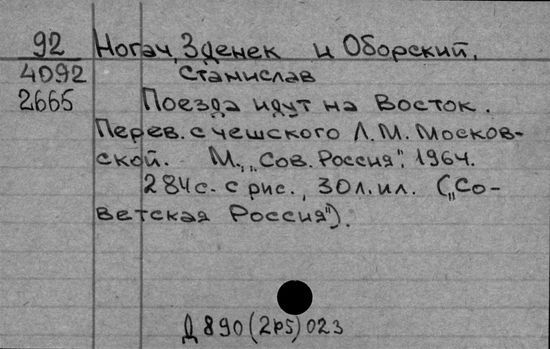 92 Ногач, Зденек и Оборский,
4092 Станислав
2665 Поезда идут на Восток.
Перев. с чешского Л.М. Москов-
ской. М., „Сов. Россия", 1964.
284с. с рис., 30л.ил. („Со-
ветская Россия").
Д 890(2р5)023